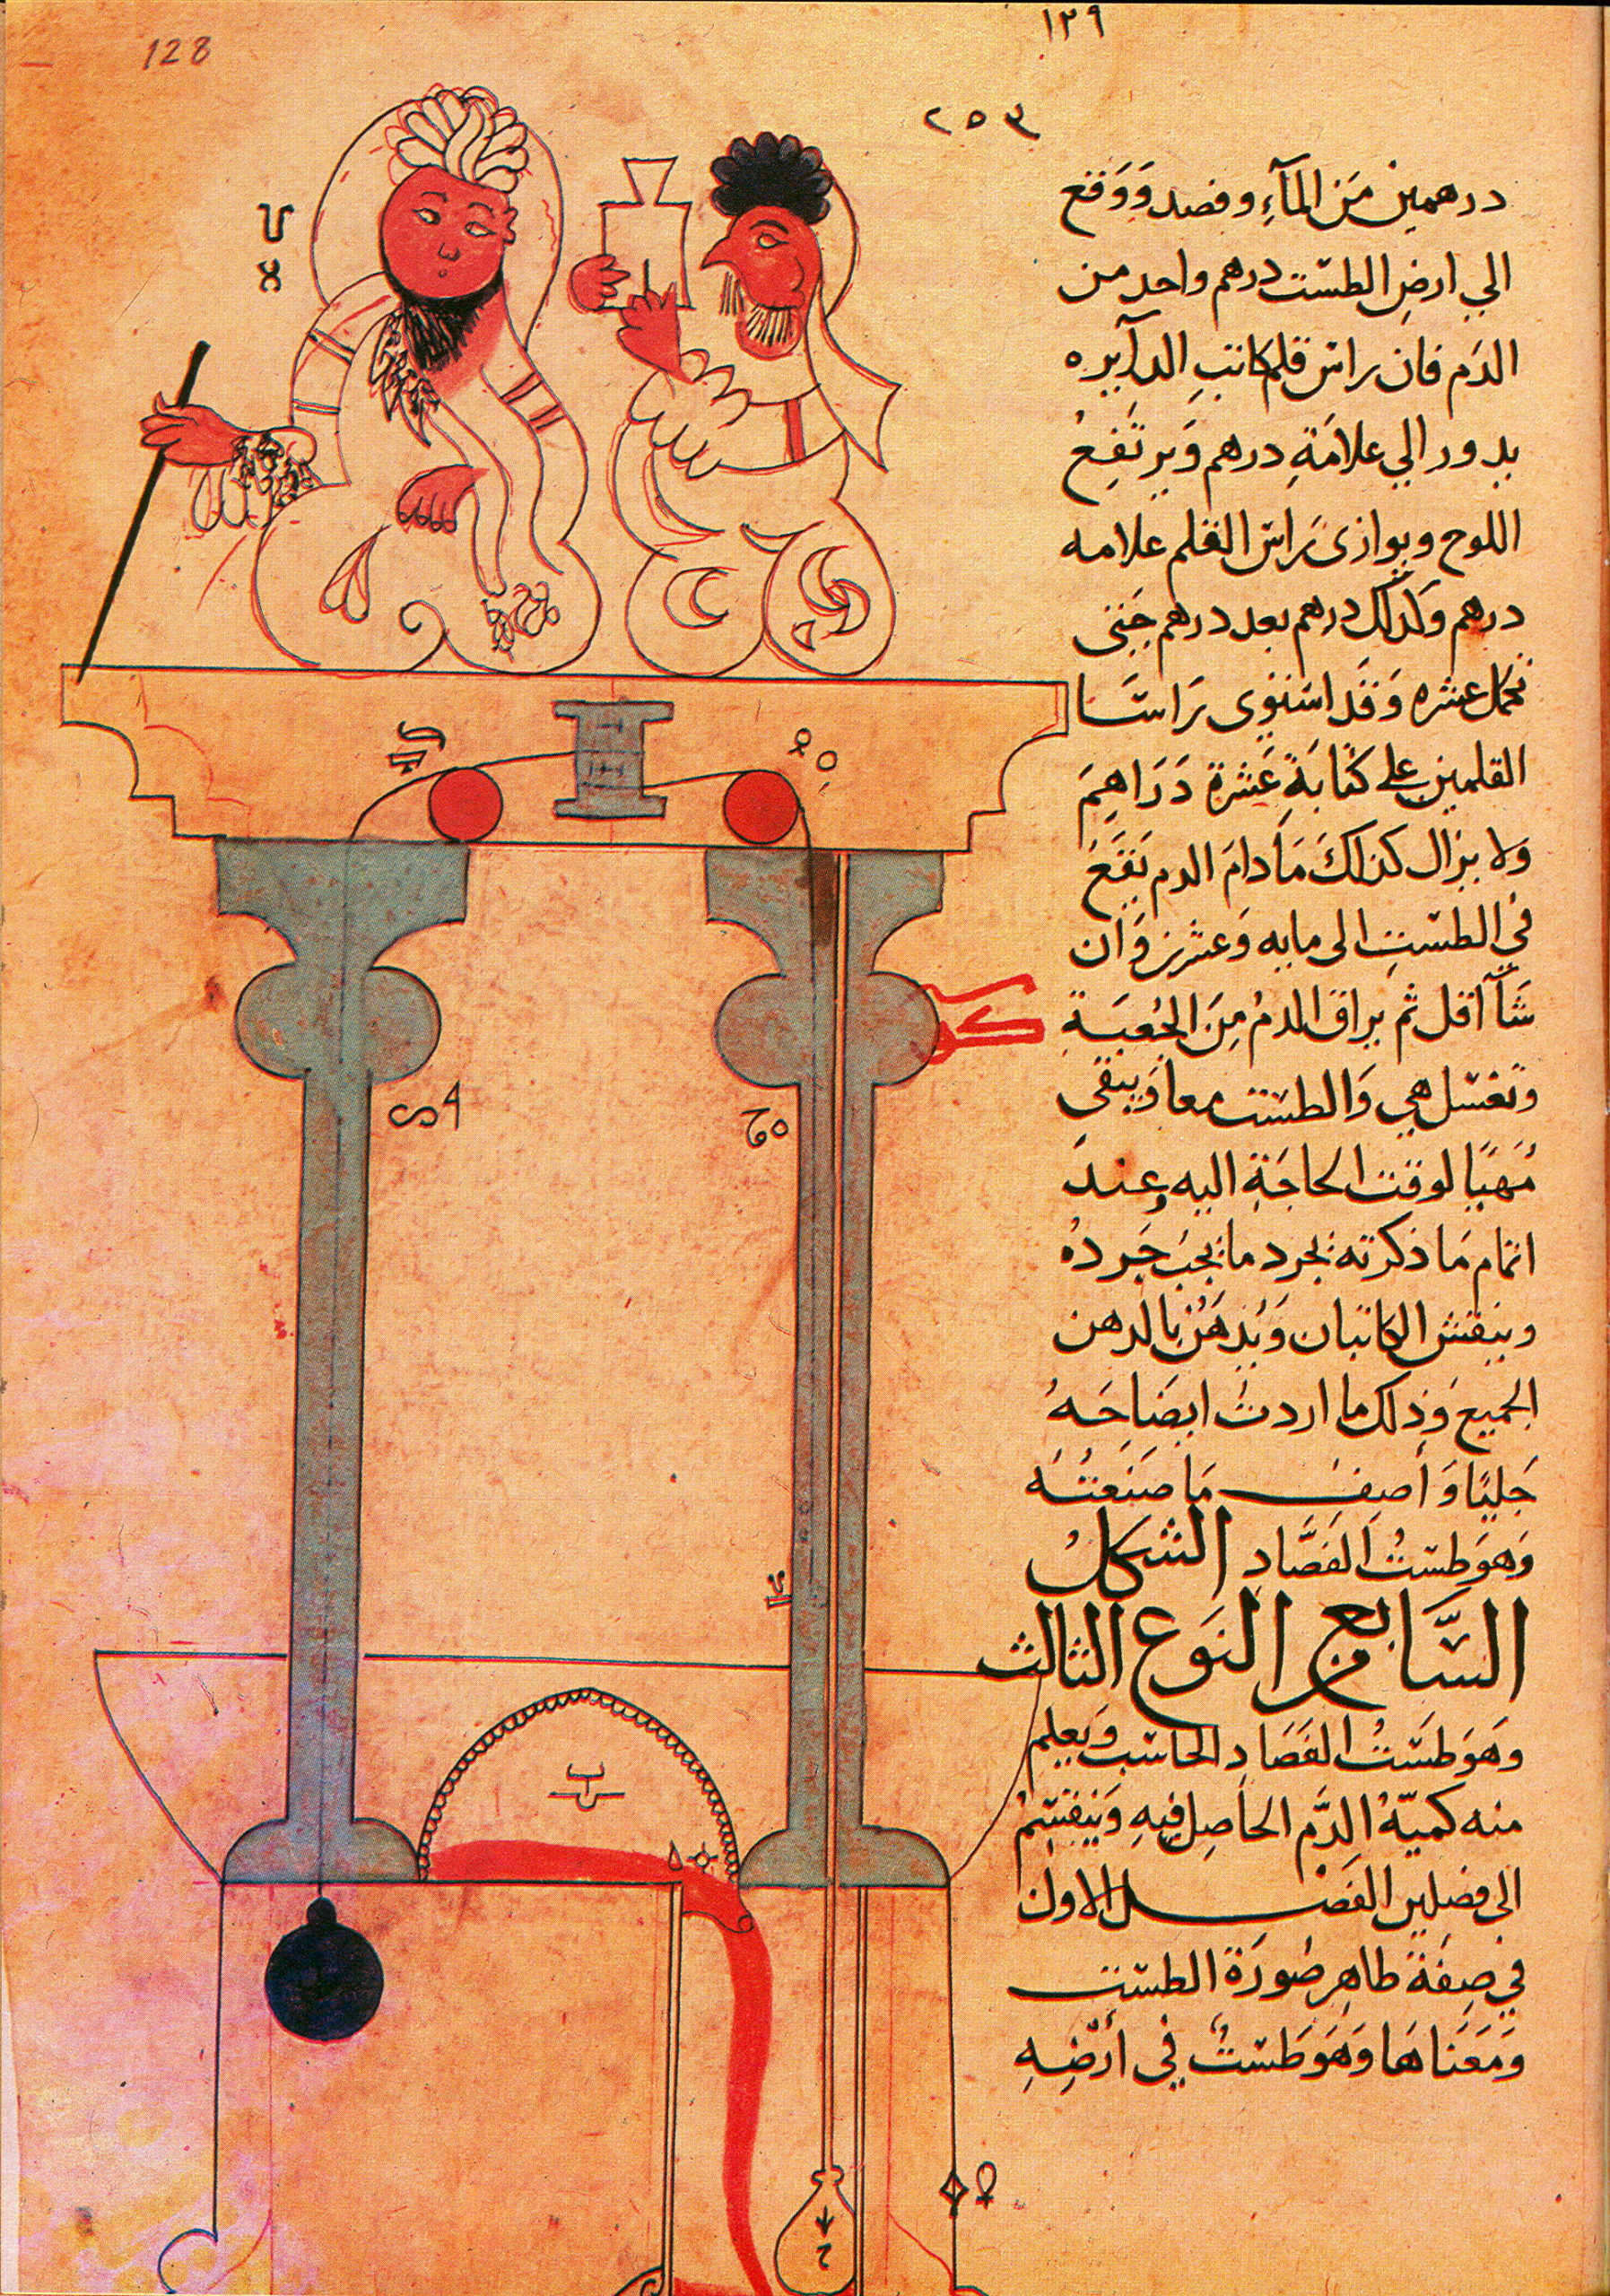 128
١٢٩
٢٥٣
درهمين مَن المآءِ وفصد وَوَقع
الي ارضِ الطست درهم واحد من
الدَم فان راس قلم كاتبِ الدآيره
يدور الي علامَةِ درهم وَيرتَفِعُ
اللوح ويوازى رَاس القلم علامه
درهم وَكذلك درهم بعد درهم حَتى
تكمل عشره وَقَد استوى رَاسَا
القلمين على كتابَةِ عَشرة دَرَاهِمَ
ولا يزال كذلكَ مَا دامَ الدم يَقَعُ
في الطستِ الى مايه وَعشرين وَان
شَآ اقل ثم يراق الدمُ مِنَ الجُعبَةِ
وتغسل هي وَالطست معا وَيبقى
مُهَيَّا لوقت الحاجَةِ اليه وعِند
اتمام مَا ذكرته يجرد ما يجبُ جَردُه
وينقش الكاتبان وَيُدهَنُ بالدهن
الجميع وَذلك ما اردتُ ايضَاحَهُ
جَليًا وَأصِفُ مَا صَنعتُه
وَهوَ طستُ الفَصَّادِ الشكلُ
السَّابع من النوَع الثالث
وهَوَ طَستُ الفَصَادِ الحاسب وَيعلم
منه كميّةُ الدَّمِ الحاصِل فيهِ وَينقسمُ
الى فصلين الفَصْل الاول
في صِفَة ظاهِر صُورَة الطست
وَمَعَناهَا وَهَوَ طَستُ في أرضِهِ
ب
ح